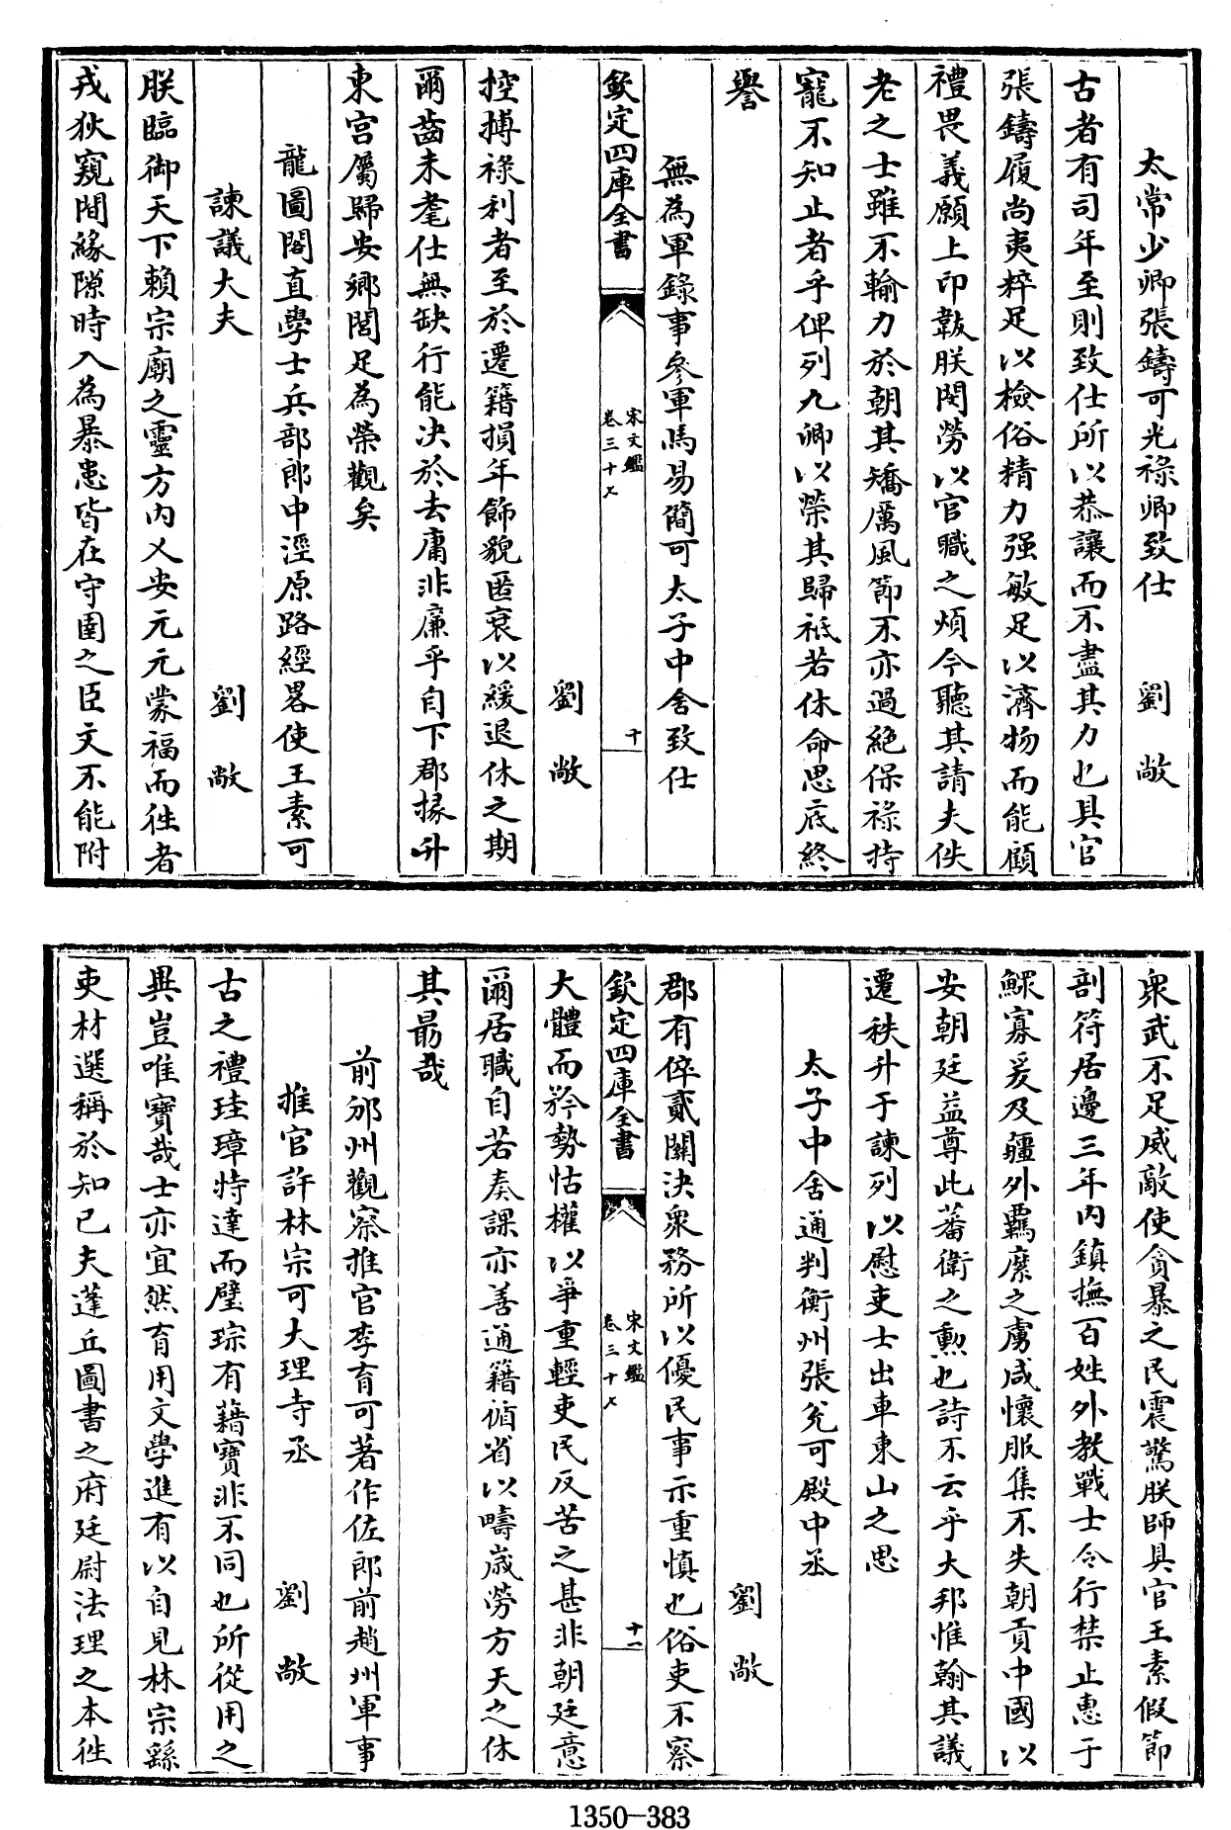 太常少卿張鑄可光祿卿致仕 劉敞
古者有司年至則致仕所以恭讓而不盡其力也具官
張鑄履尚夷粹足以檢俗精力强敏足以濟物而能顧
禮畏義願上印韍朕閔勞以官職之煩今聽其請夫佚
老之士雖不輸力於朝其矯厲風節不亦過絶保祿持
寵不知止者乎俾列九卿以榮其歸祗若休命思底終
譽
無為軍錄事參軍馬易簡可太子中舍致仕
欽定四庫全書 宋文鑑 卷三十七 十
劉敞
控摶祿利者至於遷籍損年飾貌匿衰以緩退休之期
爾齒未耄仕無缺行能决於去庸非廉乎自下郡掾升
東宫屬歸安鄉閭足為榮觀矣
龍圖閣直學士兵部郎中涇原路經畧使王素可
諫議大夫 劉敞
朕臨御天下賴宗廟之靈方内乂安元元蒙福而往者
戎狄窺間緣隙時入為暴患皆在守圉之臣文不能附
衆武不足威敵使貪暴之民震驚朕師具官王素假節
剖符居邊三年内鎮撫百姓外教戰士令行禁止惠于
鰥寡爰及疆外羈縻之虜咸懷服集不失朝貢中國以
安朝廷益尊此蕃衛之勲也詩不云乎大邦惟翰其議
遷秩升于諫列以慰吏士出車東山之思
太子中舍通判衡州張兊可殿中丞
劉敞
郡有倅貳關決衆務所以優民事示重慎也俗吏不察
欽定四庫全書 宋文鑑 卷三十七 十一
大體而矜勢怙權以爭重輕吏民反苦之甚非朝廷意
爾居職自若奏課亦善通籍循省以疇歲勞方天之休
其勗哉
前邠州觀察推官李育可著作佐郎前趙州軍事
推官許林宗可大理寺丞 劉敞
古之禮珪璋特達而璧琮有藉寶非不同也所從用之
異豈唯寶哉士亦宜然育用文學進有以自見林宗繇
吏材選稱於知已夫蓬丘圖書之府廷尉法理之本往
1350-383